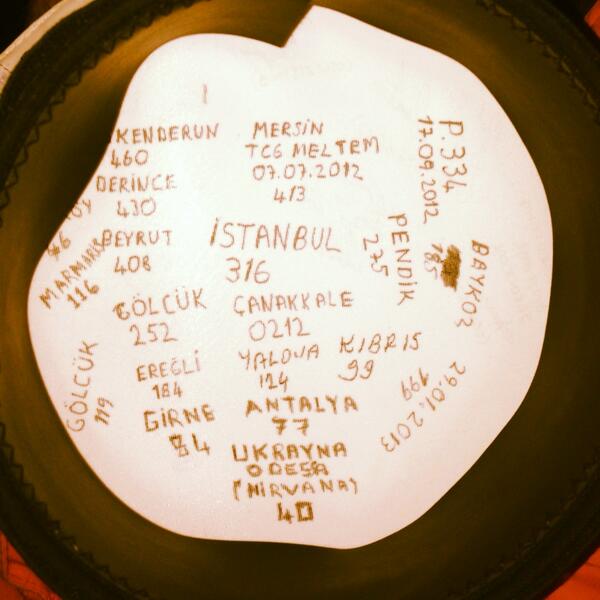 KENDERUN
460
DERİNCE
430
BEYRUT
408
MARMARİS
116
GÖLCÜK
252
EREĞLİ
184
GÖLCÜK
119
GİRNE
84
MERSİN
TCG MELTEM
07.07.2012
413
İSTANBUL
316
ÇANAKKALE
0212
YALOVA
124
KIBRIS
99
ANTALYA
77
UKRAYNA
ODESA
(NIRVANA)
40
P.334
17.09.2012
PENDİK
275
BAYKOZ
185
29.01.2013
199